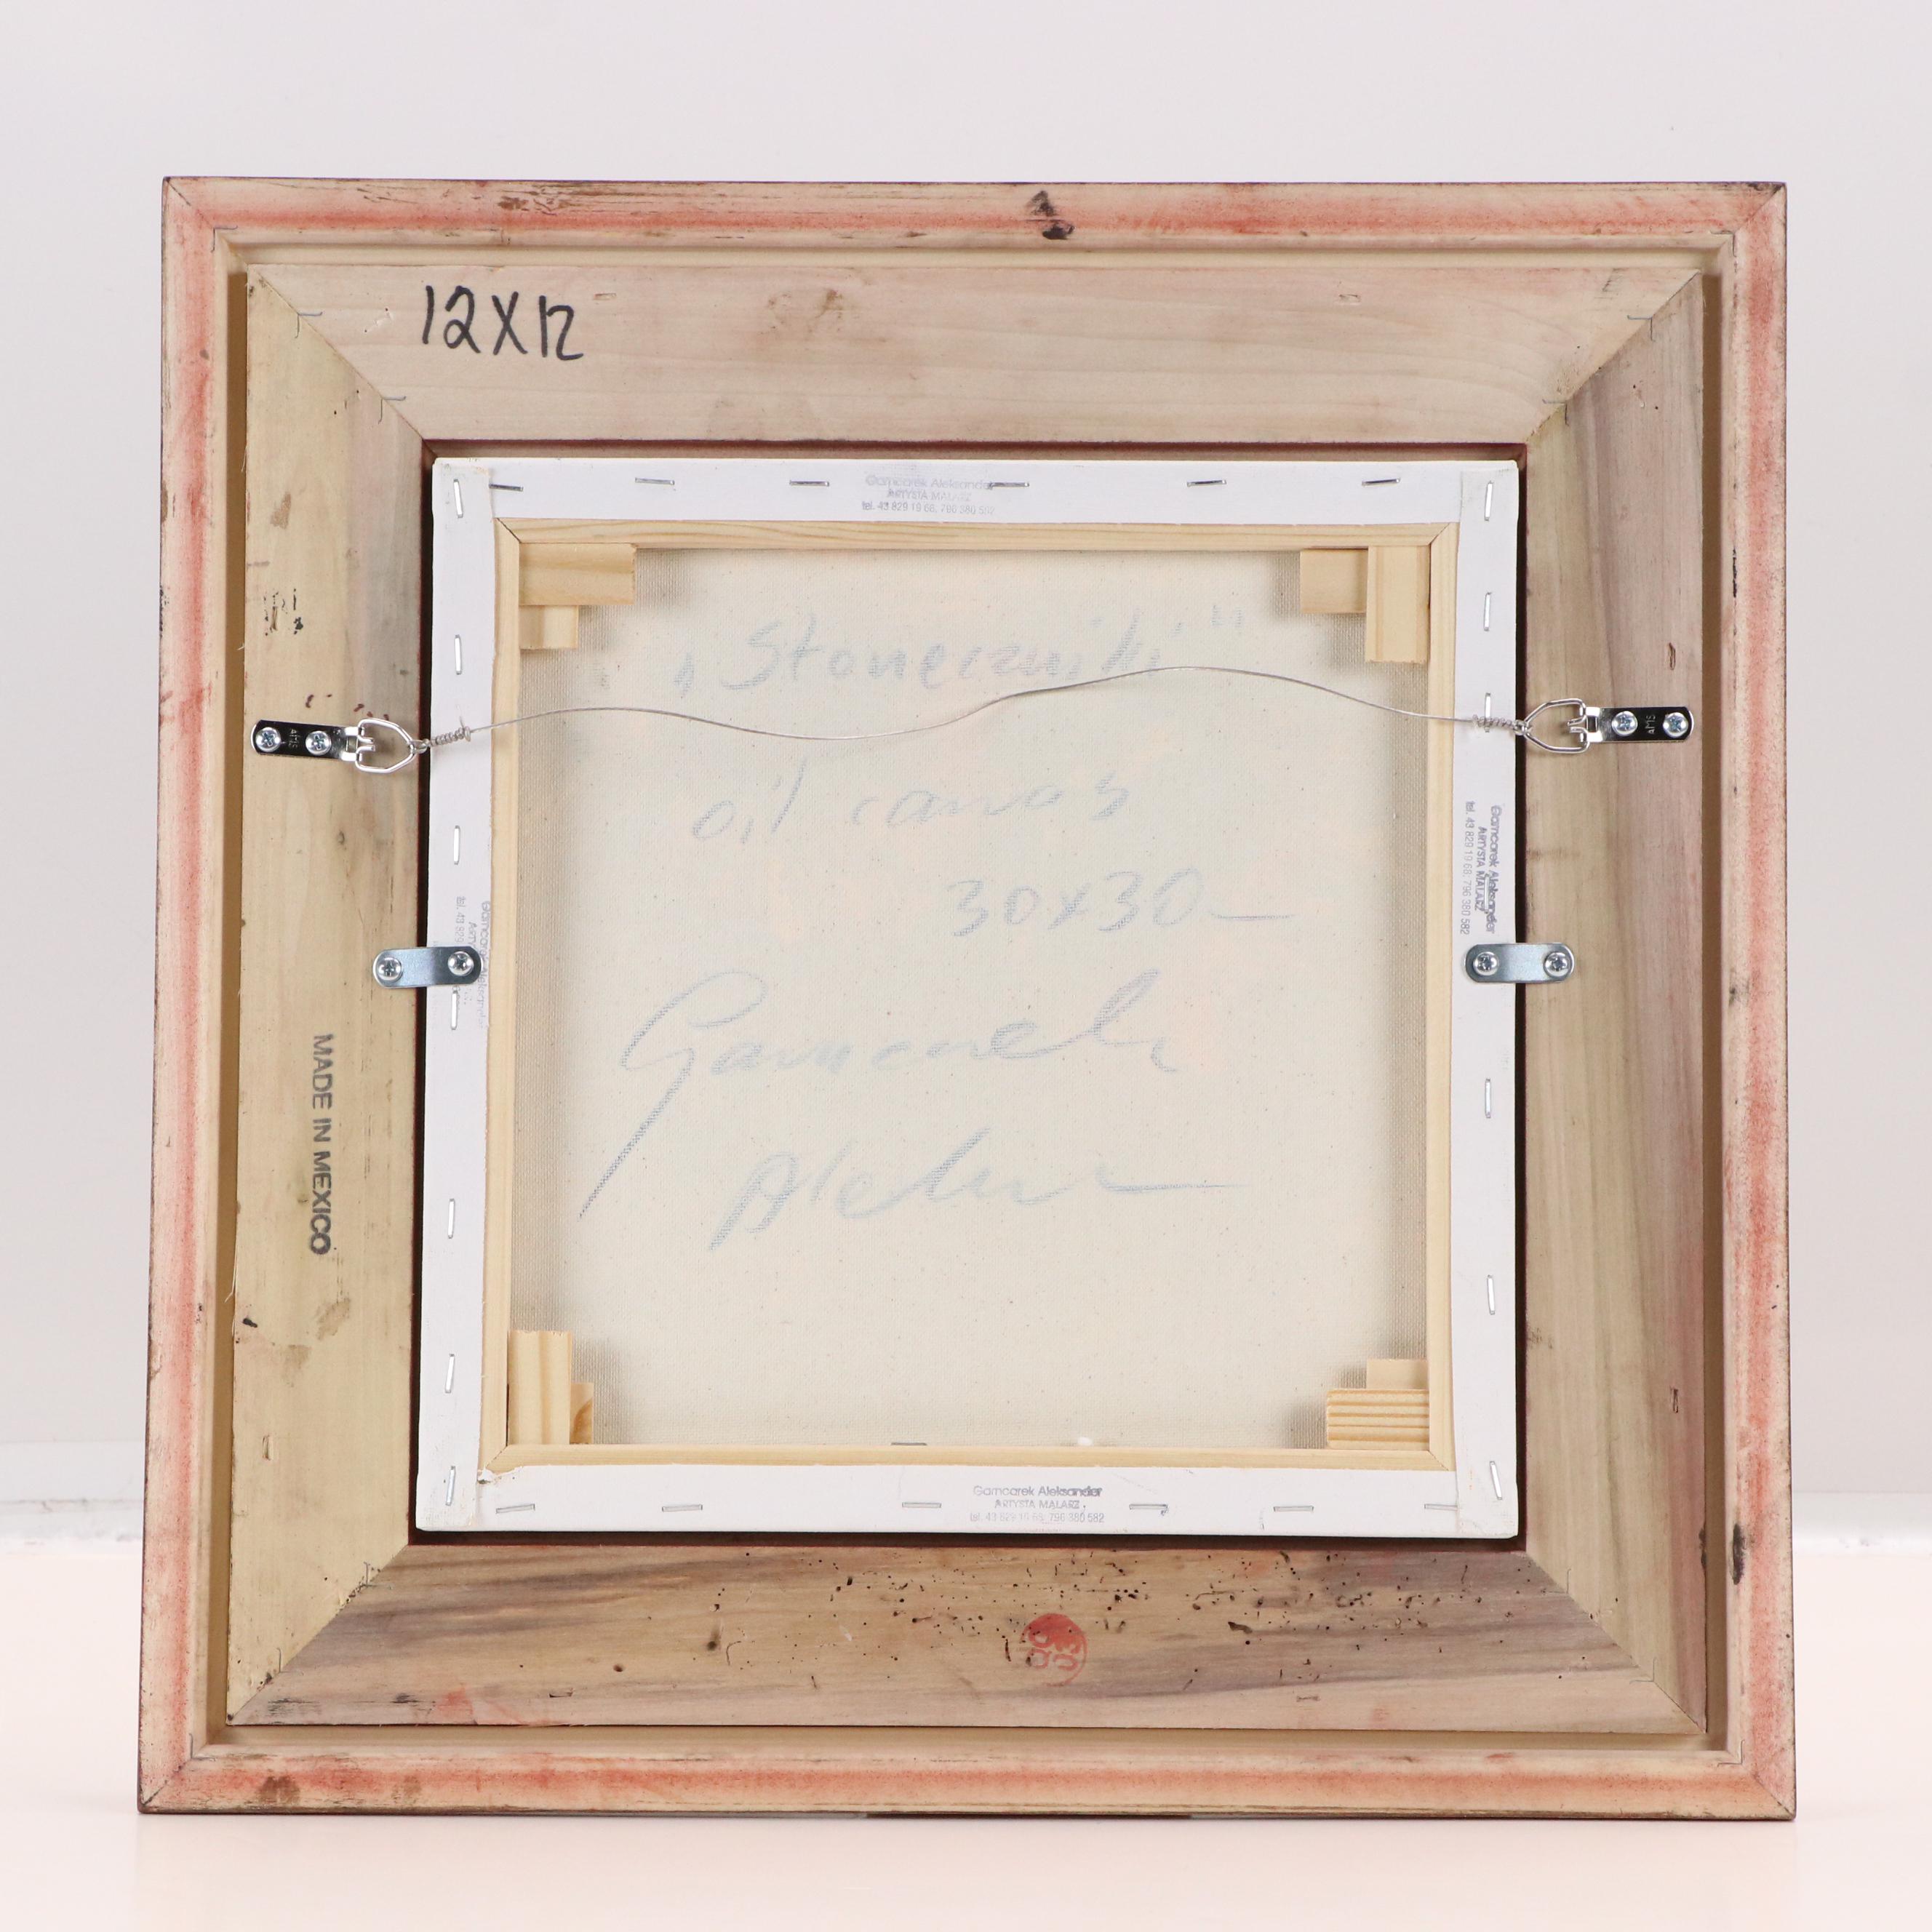 12X12
Gamcarek Aleksander
ARTYSTA MALARZ
tel. 43 829 19 68, 796 380 582
„Słoneczniki"
oil canvas
30x30
Gamcarek
Gamcarek Aleksander
ARTYSTA MALARZ
tel. 43 829 19 68, 796 380 582
Gamcarek Aleksander
tel. 43 829
MADE IN MEXICO
Gamcarek Aleksander
ARTYSTA MALARZ
tel. 43 829 19 68, 796 380 582
QC
03